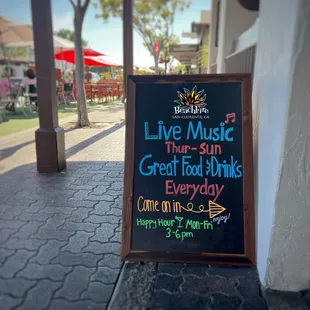 BeachFire
SAN CLEMENTE, CA
Live Music
Thur-Sun
Great Food & Drinks
Everyday
Come on in
enjoy!
Happy Hour Mon-Fri
3-6pm